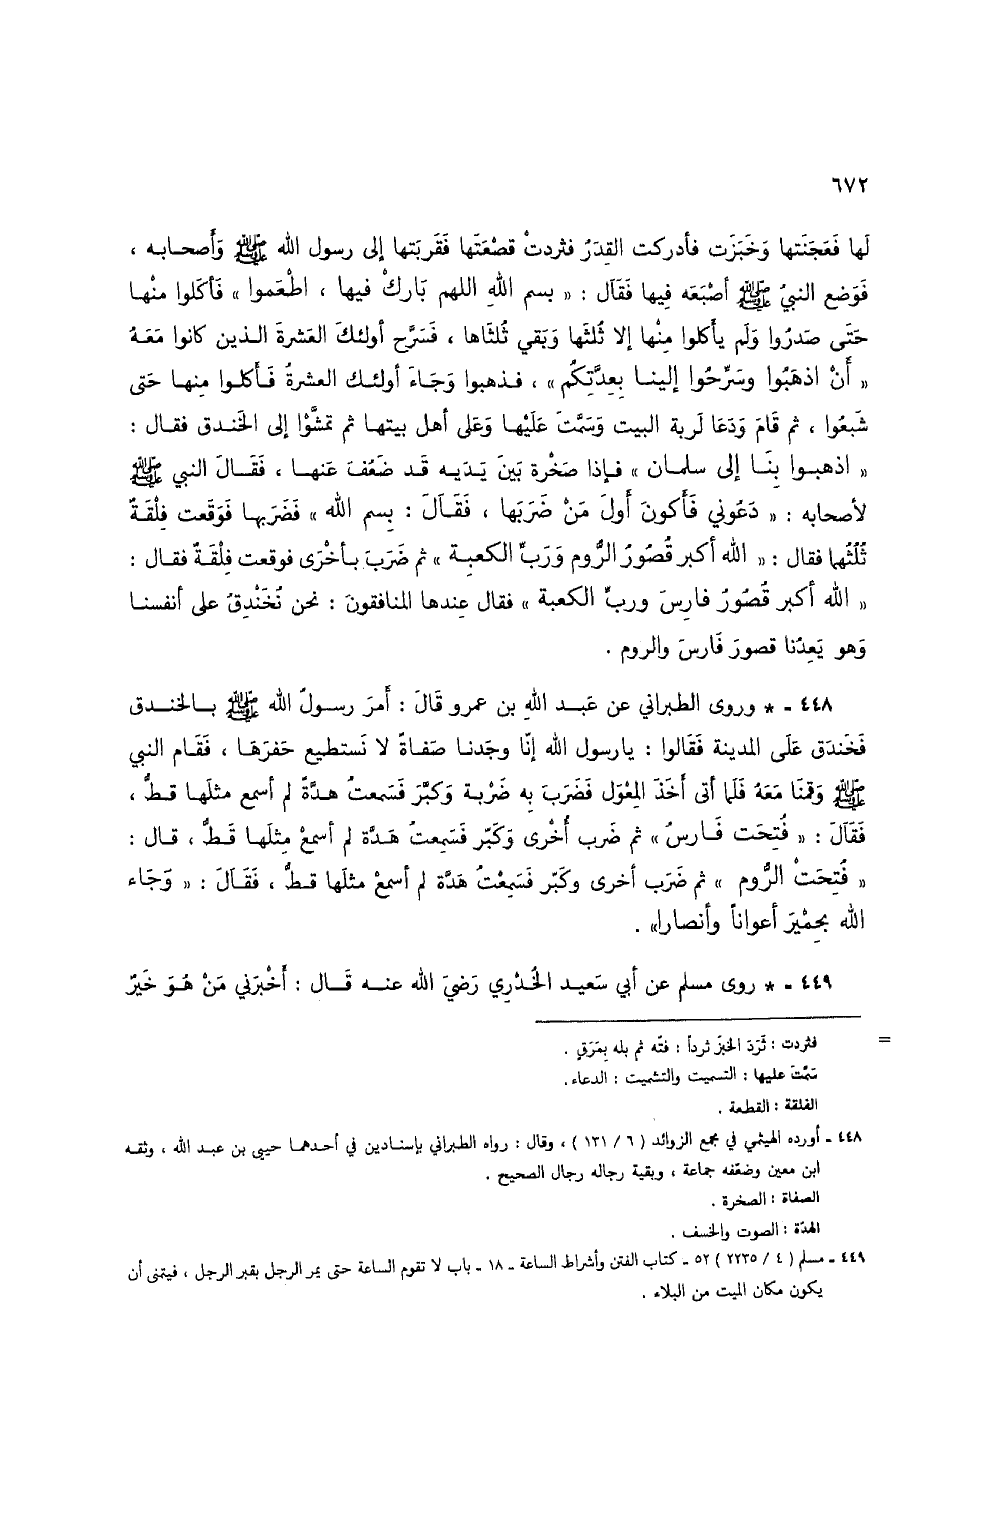 ٦٧٢
لَها فَعَجَنَتها وَخَبَزَت فأدركت القِدَرُ فثردتْ قصْعَتَها فَقَربَتها إلى رسول الله ﷺ وَأصحـابـه ،
فَوَضع النبيُ ﷺ أصْبَعَه فِيها فَقَال : « بسم اللهِ اللهم بَاركْ فيها ، اطْعَموا » فَأكَلوا منْهـا
حَتَى صَدرُوا وَلَم يأكلوا مِنْها إلا ثُلثَها وَبَقي ثُلثَاها ، فَسَرَّح أولئكَ العَشرةَ الـذين كانوا مَعَهُ
« أَنْ اذهَبُوا وسَرِّحُوا إلينـا بِعِدَّتِكُم » ، فـذهبوا وَجَاءَ أولئـك العشرةُ فَـأكلـوا مِنهـا حَتى
شَبعُوا ، ثم قَامَ وَدَعَا لَربة البيت وَسَمَّتَ عَلَيْهـا وَعَلى أهل بيتهـا ثم تمشَّوْا إلى الخَنـدق فقـال :
« اذهبـوا بِنَـا إلى سلمان » فـإذا صَخْرة بَينَ يَـدَيـه قَـد ضَعُفَ عَنهـا ، فَقَـالَ النبي ﷺ
لأصحابه : « دَعُوني فَأكونَ أولَ مَنْ ضَرَبَها ، فَقَـالَ : بسم الله » فَضَرَبهـا فَوَقَعت فِلْقَـةٌ
ثُلُثُها فقال : « الله أكبر قُصُورُ الرُّوم وَرَبِّ الكعبـة » ثم ضَرَبَ بـأخْرَى فوقعت فِلْقَـةٌ فقـال :
« الله أكبر قُصُورُ فارِسَ وربِّ الكعبة » فقال عِندها المنافقونَ : نحن نُخَنْدِقُ على أنفسنـا
وَهو يَعِدُنا قصورَ فَارِسَ والروم .
٤٤٨ - * وروى الطبراني عن عَبـد اللهِ بن عمرو قَالَ : أَمرَ رسـولُ الله ﷺ بـالخنـدق
فَخَندَق عَلَى المدينة فَقَالوا : يارسول الله إنّا وجَدنـا صَفـاةً لا نَستطيع حَفرَهَـا ، فَقَـام النبي
ﷺ وَقمنَا مَعَهُ فَلَما أتى أَخَذَ المِعْوَل فَضَرَبَ به ضَرْبـة وَكبَّرَ فَسَمِعتُ هـدَّةً لم أسمع مثلَهـا قـطُّ ،
فَقَالَ : « فُتِحَت فَـارسُ » ثم ضَرب أُخْرى وَكَبَّر فَسَمِعتُ هَدَّة لم أسمعْ مِثلَهـا قَـطُّ ، قـال :
« فُتِحَتْ الرُّوم » ثم ضَرَب أخرى وكبَّر فَسَمِعْتُ هَدَّة لم أسمعْ مثلَها قـطُّ ، فَقَـالَ : « وَجَاء
الله بحِمْيَرَ أعواناً وأنصارا» .
٤٤٩ - * روى مسلم عن أبي سَعيـد الخُدْرِي رَضيَ الله عنـه قَـال : أَخْبَرَني مَنْ هُـوَ خَيرٌ
=
فثردت : ثَرَدَ الخبزَ ثرداً : فتّه ثم بله بِمَرَقٍ .
سَمَّتَ عليها : التسميت والتشميت : الدعاء.
الفلقة : القطعة .
٤٤٨ - أورده الهيثمي في مجمع الزوائد ( ٦ / ١٣١ ) ، وقال : رواه الطبراني بإسنادين في أحدهمـا حيي بن عبـد الله ، وثقـه
ابن معين وضعّفه جماعة ، وبقية رجاله رجال الصحيح .
الصفاة : الصخرة .
الهدّة : الصوت والخسف .
٤٤٩ - مسلم ( ٤ / ٢٢٣٥ ) ٥٢ - كتاب الفتن وأشراط الساعة - ١٨ - باب لا تقوم الساعة حتى يمر الرجل بقبر الرجل ، فيتمنى أن
يكون مكان الميت من البلاء .